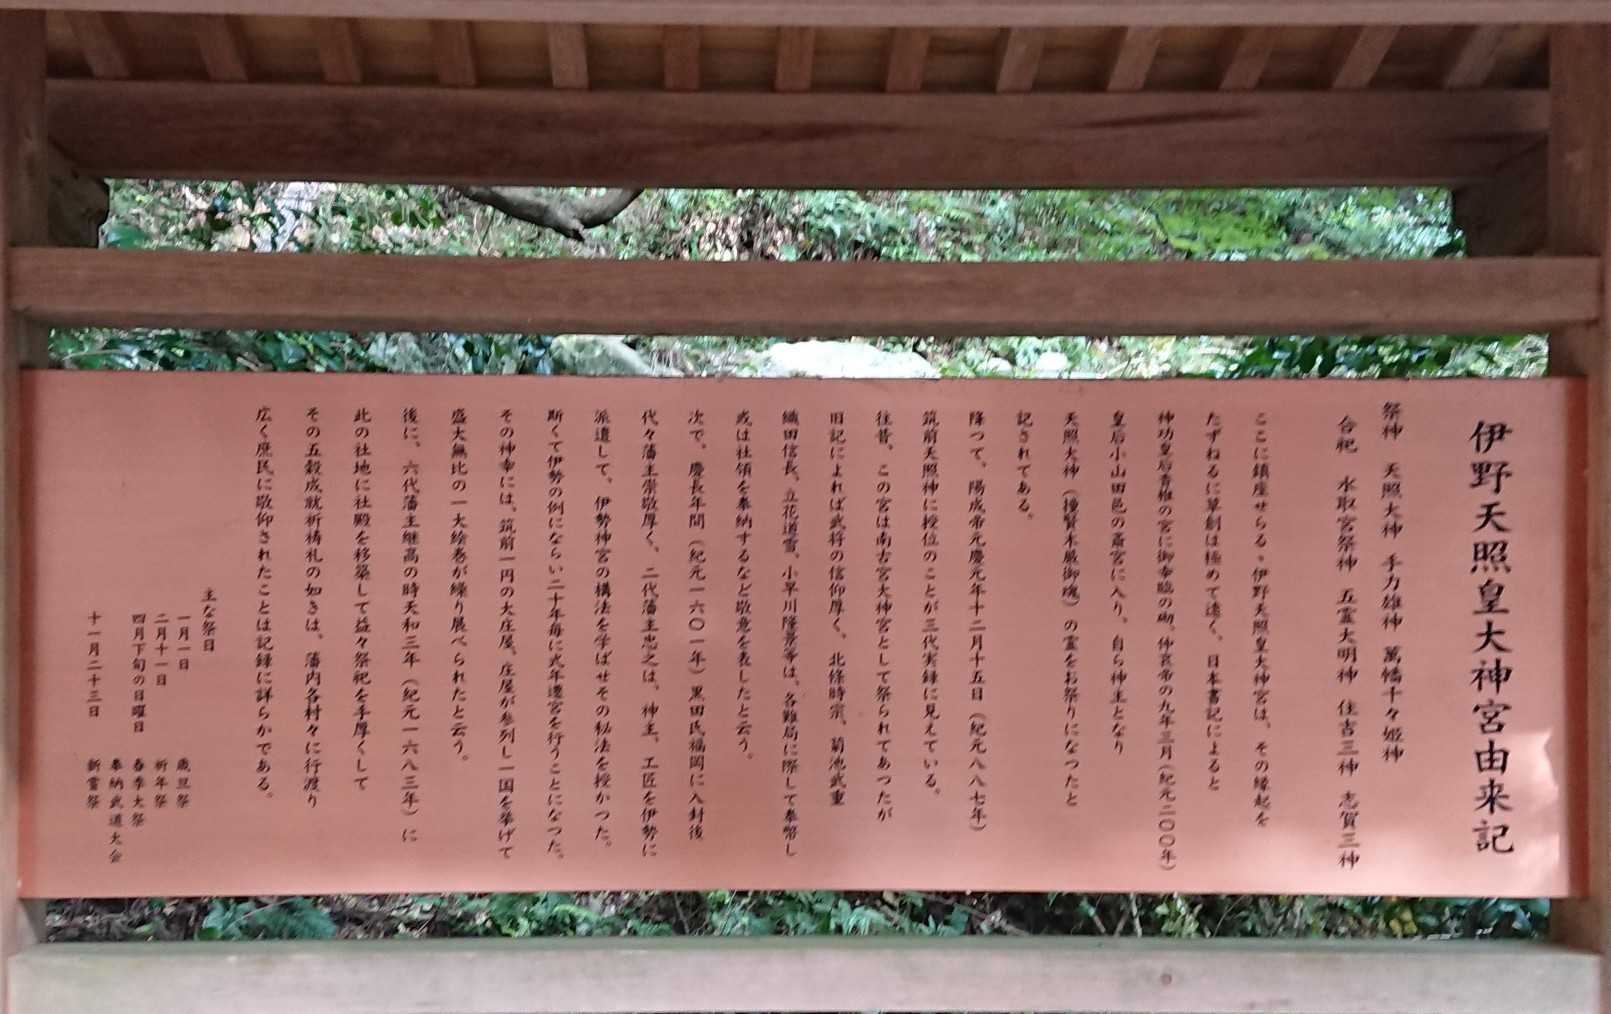 伊野天照皇大神宮由来記
祭神　天照大神　手力雄神　萬幡千々姫神
合祀　水取宮祭神　五霊大明神　住吉三神　志賀三神
ここに鎮座せらる。伊野天照皇大神宮は、その縁起を
たずねるに草創は極めて遠く、日本書記によると
神功皇后香椎の宮に御幸臨の砌、仲哀帝の九年三月（紀元二〇〇年）
皇后小山田邑の斎宮に入り、自ら神主となり
天照大神（撞賢木厳御魂）の霊をお祭りになつたと
記されてある。
降つて、陽成帝元慶元年十二月十五日（紀元八八七年）
筑前天照神に授位のことが三代実録に見えている。
往昔、この宮は南古宮大神宮として祭られてあつたが
旧記によれば武将の信仰厚く、北條時宗、菊池武重
織田信長、立花道雪、小早川隆景等は、各難局に際して奉幣し
或は社領を奉納するなど敬意を表したと云う。
次で、慶長年間（紀元一六〇一年）黒田氏福岡に入封後
代々藩主崇敬厚く、二代藩主忠之は、神主、工匠を伊勢に
派遣して、伊勢神宮の構法を学ばせその秘法を授かつた。
斯くて伊勢の例にならい二十年毎に式年遷宮を行うことになつた。
その神幸には、筑前一円の大庄屋、庄屋が参列し一国を挙げて
盛大無比の一大絵巻が繰り展べられたと云う。
後に、六代藩主継高の時天和三年（紀元一六八三年）に
此の社地に社殿を移築して益々祭祀を手厚くして
その五穀成就祈祷礼の如きは、藩内各村々に行渡り
広く庶民に敬仰されたことは記録に詳らかである。
主な祭日
一月一日　歳旦祭
二月十一日　祈年祭
四月下旬の日曜日　春季大祭
奉納武道大会
十一月二十三日　新嘗祭